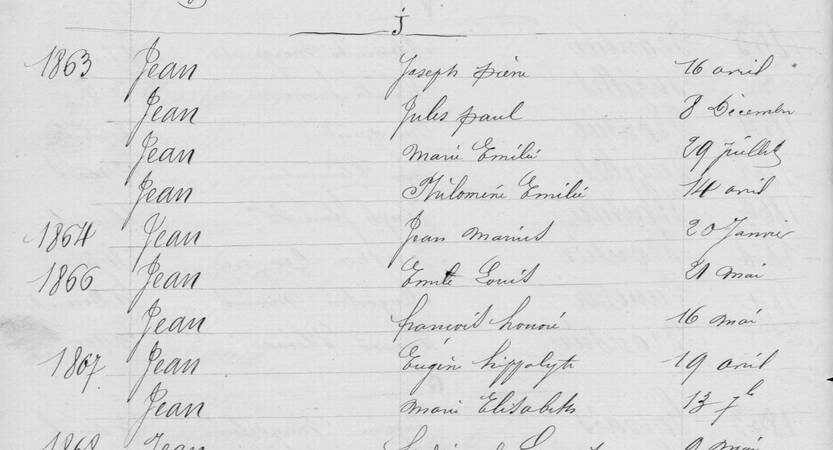 j
1863 Jean Joseph pierre 16 avril
Jean Jules paul 8 Décembre
Jean Marie Emilie 29 juillet
Jean Philomène Emilie 14 avril
1864 Jean Jean Marius 20 Janvier
1866 Jean Emile Louis 21 mai
Jean françois honoré 16 mai
1867 Jean Eugène hippolyte 19 avril
Jean Marie Elisabeth 13 7b
1868 Jean 9 mai